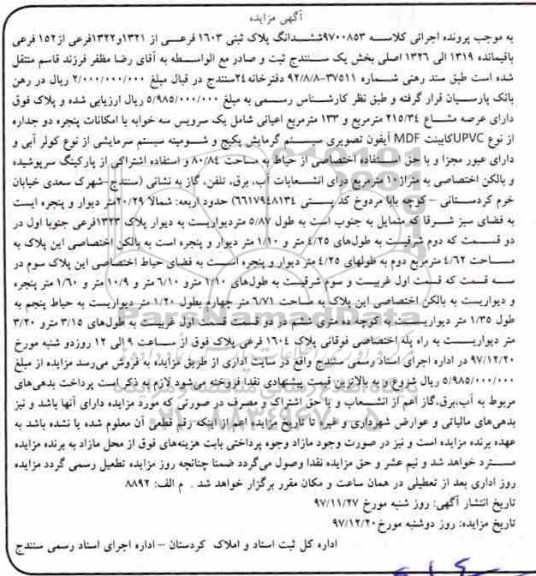 آگهی مزایده
به موجب پرونده اجرائی کلاسه ۹۷۰۰۸۵۳ ششدانگ پلاک ثبتی ۱۶۰۳ فرعی از ۱۳۲۱و۱۳۲۲فرعی از۱۵۲ فرعی
باقیمانده ۱۳۱۹ الی ۱۳۲۶ اصلی بخش یک سنندج ثبت و صادر مع الواسطه به آقای رضا مظفر فرزند قاسم منتقل
شده است طبق سند رهنی شماره ۳۷۵۱۱-۹۲/۸/۸ دفترخانه ۲۴سنندج در قبال مبلغ ۲/۰۰۰/۰۰۰/۰۰۰ ریال در رهن
بانک پارسیان قرار گرفته و طبق نظر کارشناس رسمی به مبلغ ۵/۹۸۵/۰۰۰/۰۰۰ ریال ارزیابی شده و پلاک فوق
دارای عرصه مشاع ۲۱۵/۳۴ مترمربع و ۱۳۳ مترمربع اعیانی شامل یک سرویس سه خوابه با امکانات پنجره دو جداره
از نوع UPVC کابینت MDF آیفون تصویری سیستم گرمایش پکیج و شومینه سیستم سرمایشی از نوع کولر آبی و
دارای عبور مجزا و با حق استفاده اختصاصی از حیاط به مساحت ۸۰/۸۴ و استفاده اشتراکی از پارکینگ سرپوشیده
و بالکن اختصاصی به متراژ ۱۰ مترمربع درای انشعابات آب، برق، تلفن، گاز به نشانی (سنندج- شهرک سعدی خیابان
خرم کردستانی – کوچه بابا مردوخ کد پستی ۶۶۱۷۹۴۸۱۳۴) حدود اربعه: شمالا ۲۰/۲۹متر دیوار و پنجره ایست
به فضای سبز شرقا که متمایل به جنوب است به طول ۵/۸۷ متردیواریست به دیوار پلاک ۱۳۲۳فرعی جنوبا اول در
دو قسمت که دوم شرقیست به طولهای ۴/۲۵ متر و ۱/۱۰ متر دیوار و پنجره است به بالکن اختصاصی این پلاک به
مساحت ۴/۶۲ مترمربع دوم به طولهای ۴/۲۵ متر دیوار و پنجره است به فضای حیاط اختصاصی این پلاک سوم در
سه قسمت که قسمت اول غربیست و سوم شرقیست به طولهای ۱/۱۰ مترو ۶/۱۰ متر و ۱۰/۹ متر و ۱/۶۰ متر پنجره
و دیواریست به بالکن اختصاصی این پلاک به مساحت ۶/۷۱ متر چهارم بطول ۱/۲۰ متر دیواریست به حیاط پنجم به
طول ۱/۳۵ متر دیواریست به کوچه ده متری ششم در دو قسمت قسمت اول غربیست به طولهای ۳/۱۵ مترو ۳/۲۰
متر دیواریست به راه پله اختصاصی فوقانی پلاک ۱۶۰۴ فرعی پلاک فوق از ساعت ۹ الی ۱۲ روزدو شنبه مورخ
۹۷/۱۲/۲۰ در اداره اجرای اسناد رسمی سنندج واقع در سایت اداری از طریق مزایده به فروش می‌رسد مزایده از مبلغ
۵/۹۸۵/۰۰۰/۰۰۰ ریال شروع و به بالاترین قیمت پیشنهادی نقدا فروخته می‌شود.لازم به ذکر است پرداخت بدهی‌های
مربوط به آب،برق،گاز اعم از انشعاب و یا حق اشتراک و مصرف در صورتی که مورد مزایده دارای آنها باشد و نیز
بدهی‌های مالیاتی و عوارض شهرداری و غیره تا تاریخ مزایده اعم از اینکه رقم قطعی آن معلوم شده یا نشده باشد به
عهده برنده مزایده است و نیز در صورت وجود مازاد وجوه پرداختی بابت هزینه‌های فوق از محل مازاد به برنده مزایده
مسترد خواهد شد و نیم عشر و حق مزایده نقدا وصول می‌گردد ضمنا چنانچه روز مزایده تطعیل رسمی گردد مزایده
روز اداری بعد از تعطیلی در همان ساعت و مکان مقرر برگزار خواهد شد . م الف: ۸۸۹۲
تاریخ انتشار آگهی: روز شنبه مورخ ۹۷/۱۱/۲۷
تاریخ مزایده: روز دوشنبه مورخ ۹۷/۱۲/۲۰
اداره کل ثبت اسناد و املاک کردستان – اداره اجرای اسناد رسمی سنندج